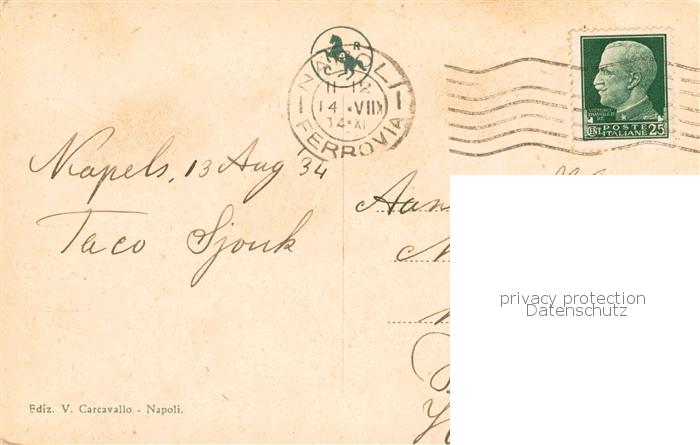 C R
NAPOLI
11-12
14 VIII
34-XI
FERROVIA
VITTORIO
EMANUELE
RE
POSTE
CENT. ITALIANE 25
Napels, 13 Aug 34
Taco Sjouk
Aan
privacy protection
Datenschutz
Ediz. V. Carcavallo - Napoli.